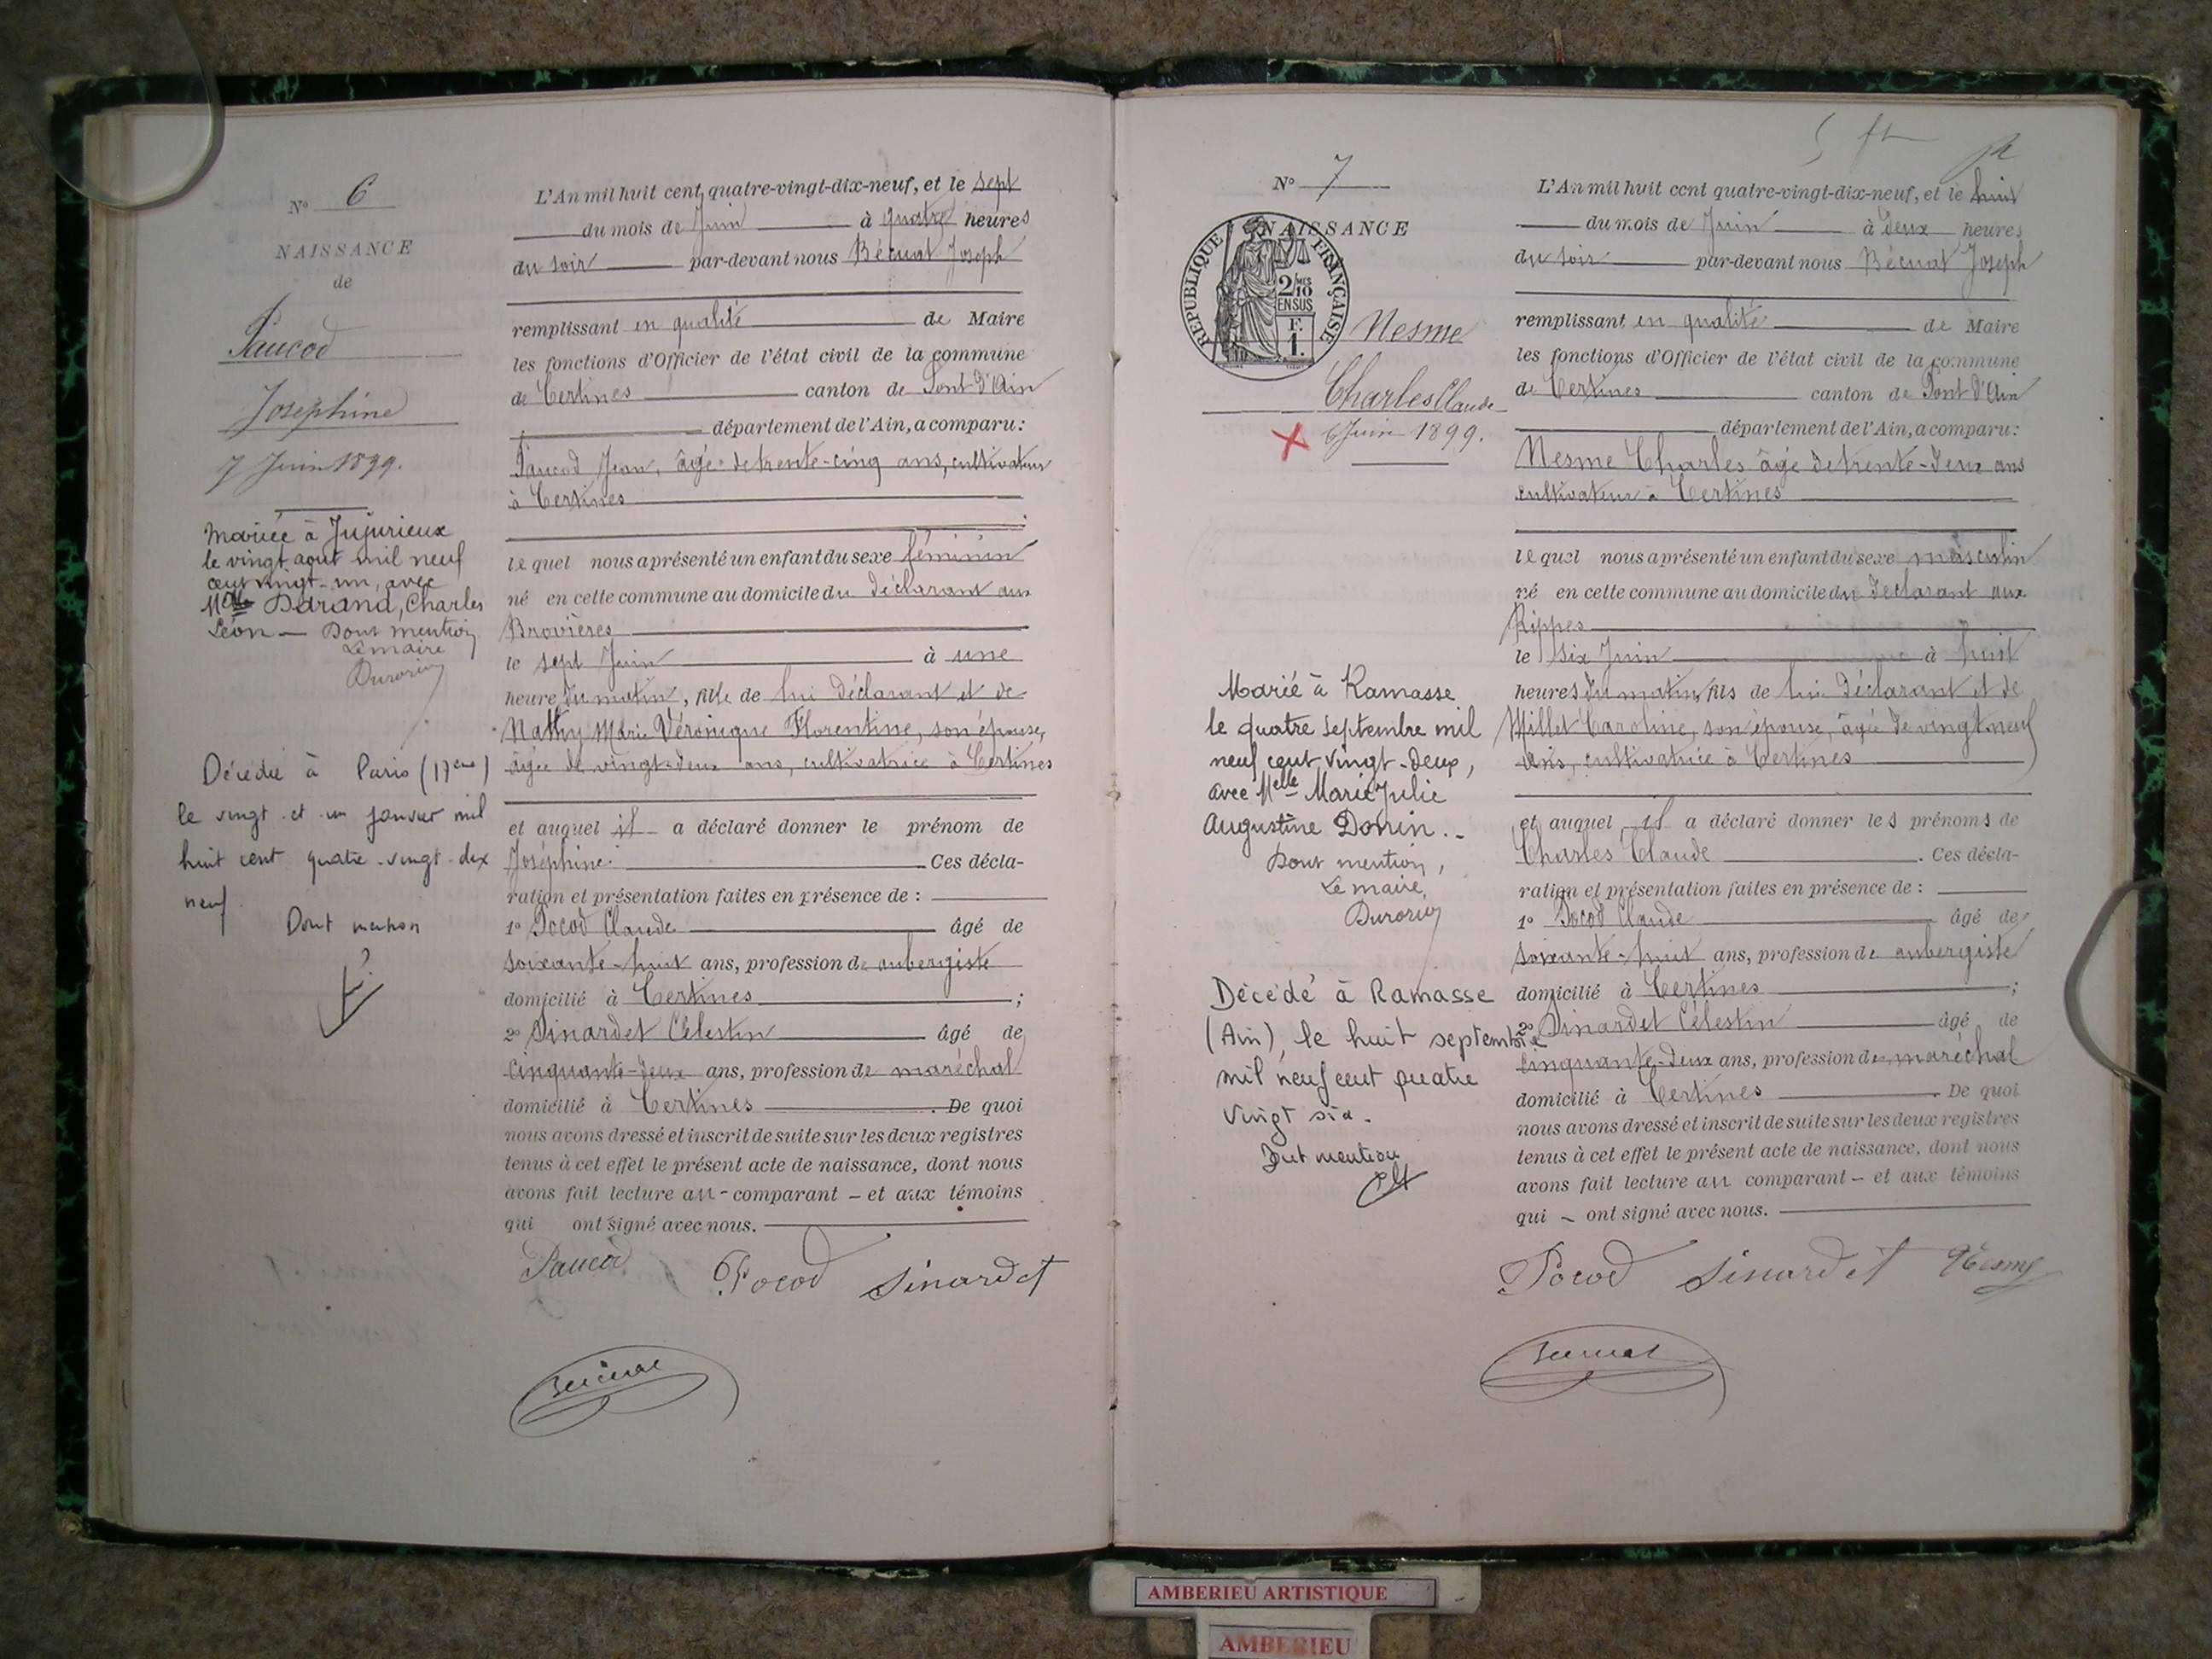 N° 6
NAISSANCE
de
Paucod
Joséphine
7 Juin 1899.
Mariée à Jujurieux
le vingt août mil neuf
cent vingt-un, avec
Darand, Charles
Léon — Dont mention
Le maire
Décédée à Paris (17ème)
le vingt et un janvier mil
huit cent quatre-vingt-dix
neuf.
Dont mention
L'An mil huit cent quatre-vingt-dix-neuf, et le sept
du mois de Juin à quatre heures
du soir par-devant nous Bécuat Joseph
remplissant en qualité de Maire
les fonctions d'Officier de l'état civil de la commune
de Certines canton de Pont d'Ain
département de l'Ain, a comparu:
Paucod Jean, âgé de trente-cinq ans, cultivateur
à Certines
le quel nous a présenté un enfant du sexe féminin
né en cette commune au domicile du déclarant aux
Brovières
le sept Juin à une
heure du matin, fille de lui déclarant et de
Mathy Marie Véronique Florentine, son épouse,
âgée de vingt-deux ans, cultivatrice à Certines
et auquel il a déclaré donner le prénom de
Joséphine. Ces décla-
ration et présentation faites en présence de :
1° Pocod Claude âgé de
soixante-huit ans, profession de aubergiste
domicilié à Certines ;
2° Sinardet Célestin âgé de
cinquante-deux ans, profession de maréchal
domicilié à Certines . De quoi
nous avons dressé et inscrit de suite sur les deux registres
tenus à cet effet le présent acte de naissance, dont nous
avons fait lecture au - comparant - et aux témoins
qui ont signé avec nous.
Paucod Pocod Sinardet
Bécuat
N° 7
NAISSANCE
RÉPUBLIQUE FRANÇAISE
2/10 MES
EN SUS
F.
1.
Nesme
Charles Claude
6 Juin 1899.
Marié à Ramasse
le quatre septembre mil
neuf cent vingt-deux,
avec Melle Marie Julie
Augustine Donin.-
Dont mention,
Le maire,
Décédé à Ramasse
(Ain), le huit septembre
mil neuf cent quatre
vingt six.
Dont mention
L'An mil huit cent quatre-vingt-dix-neuf, et le huit
du mois de Juin à deux heures
du soir par-devant nous Bécuat Joseph
remplissant en qualité de Maire
les fonctions d'Officier de l'état civil de la commune
de Certines canton de Pont d'Ain
département de l'Ain, a comparu:
Nesme Charles âgé de trente-deux ans
cultivateur à Certines
le quel nous a présenté un enfant du sexe masculin
né en cette commune au domicile du déclarant aux
Rippes
le six Juin à huit
heures du matin, fils de lui déclarant et de
Millet Caroline, son épouse, âgée de vingt-neuf
ans, cultivatrice à Certines
et auquel il a déclaré donner les prénoms de
Charles Claude . Ces décla-
ration et présentation faites en présence de :
1° Pocod Claude âgé de
soixante-huit ans, profession de aubergiste
domicilié à Certines ;
2° Sinardet Célestin âgé de
cinquante-deux ans, profession de maréchal
domicilié à Certines . De quoi
nous avons dressé et inscrit de suite sur les deux registres
tenus à cet effet le présent acte de naissance, dont nous
avons fait lecture au comparant - et aux témoins
qui - ont signé avec nous.
Pocod Sinardet Nesme
Bécuat
AMBERIEU ARTISTIQUE
AMBERIEU